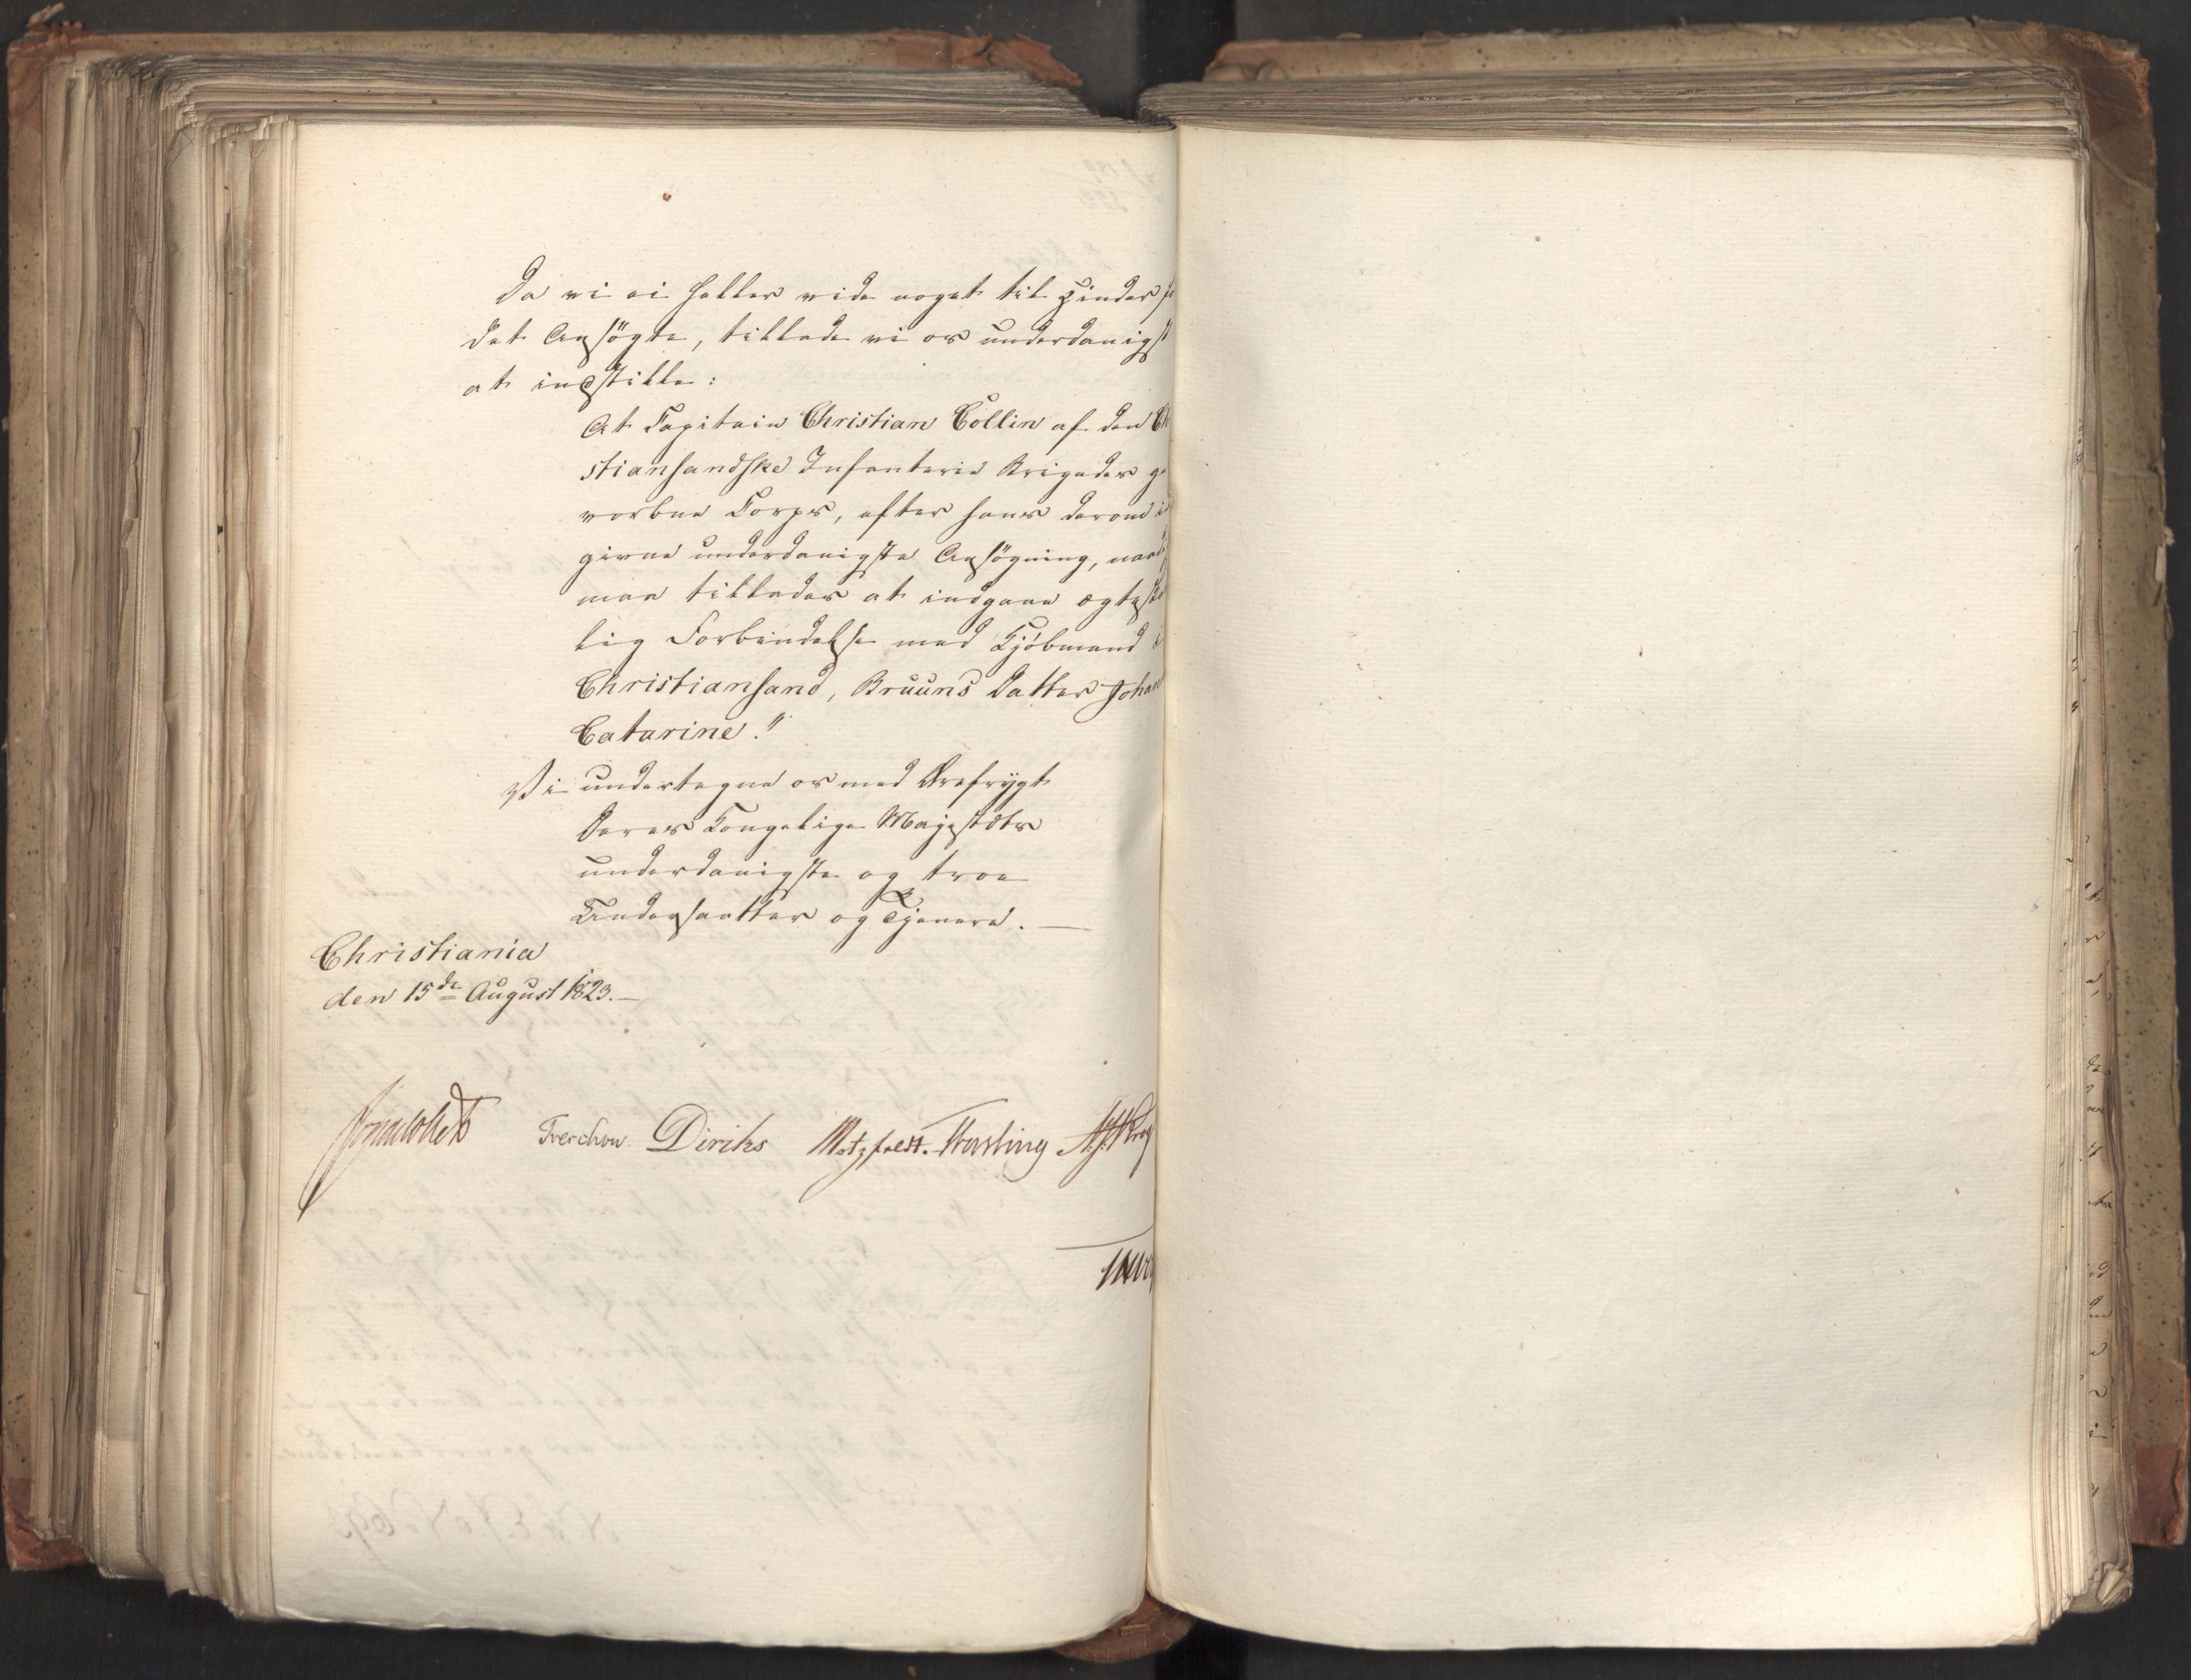 Da vi ei heller vide noget til Hinder
det Ansøgte, tillade vi os underdanigst
at indstille:
At Capitain Christian Collin af den Ch
stiansandske Infanterie Brigades ge
vorbne Corps, efter hans derom
givne underdanigste Ansøgning, naad
men tillades at indgaae ægteska
lig Forbindelse med Kjöbmand
Christiansand, Bruuns Datter Johan
Catarine."
Vi undertegne os med Ærefrygt
Deres Kongelige Majestæts
underdanigste og troe
Undersaatter og Tjenere. —
Christiania
den 15de August 1823. —
Jonas Collett Treschow. Diriks Motzfeldt. Fasting